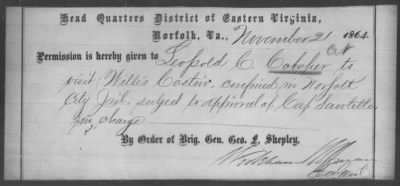 Head Quarters District of Eastern Virginia,
Norfolk, Va., November 21 1864.
Permission is hereby given to
Leopold C. Cowper to
visit Willis confined in Norfolk
City Jail, subject to approval of Cap
in charge
By Order of Brig. Gen. Geo. F. Shepley.